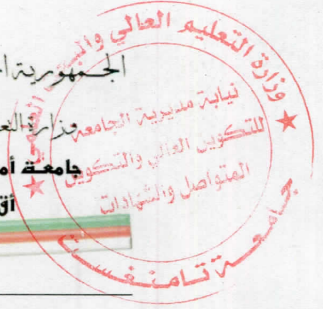 الجمهورية
وزارة
جامعة
وزارة التعليم العالي والبحث العلمي
نيابة مديرية الجامعة
للتكوين العالي والتكوين
المتواصل والشهادات
جامعة تامنغست